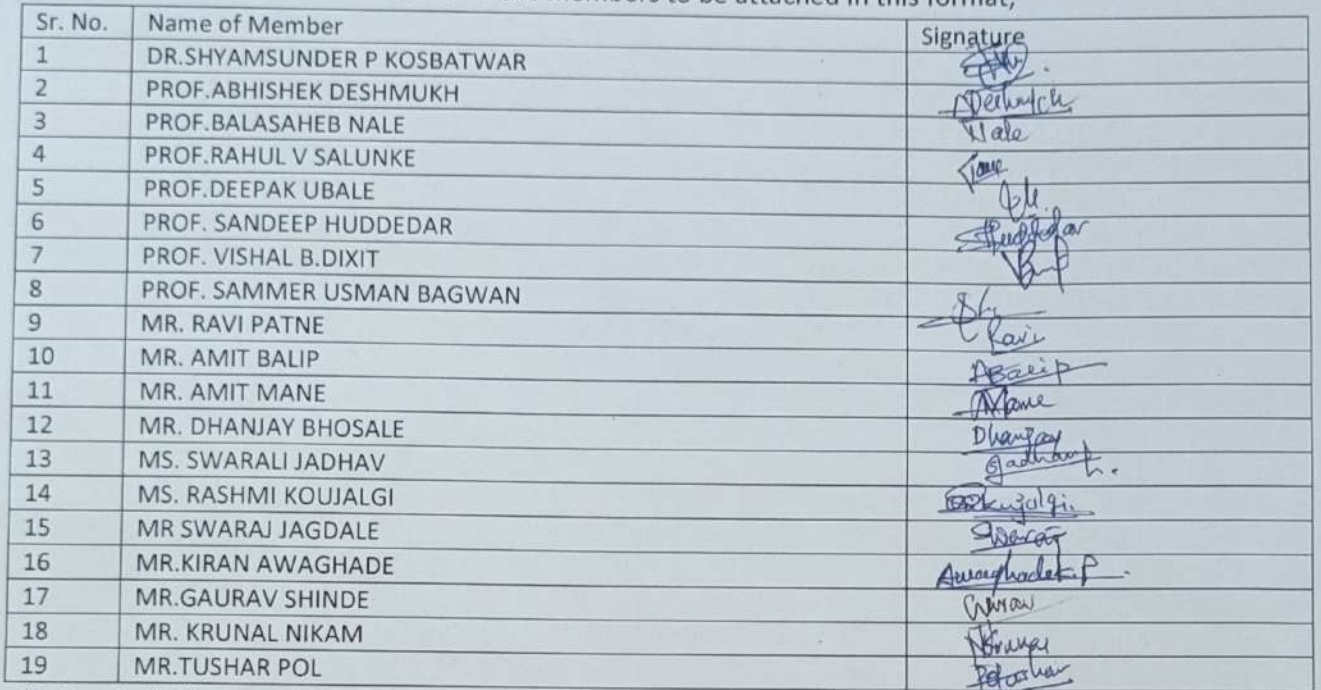 members to be attached in this format,
Sr. No. Name of Member Signature
1 DR.SHYAMSUNDER P KOSBATWAR
2 PROF.ABHISHEK DESHMUKH Deshmukh
3 PROF.BALASAHEB NALE Nale
4 PROF.RAHUL V SALUNKE
5 PROF.DEEPAK UBALE
6 PROF. SANDEEP HUDDEDAR SHuddedar
7 PROF. VISHAL B.DIXIT
8 PROF. SAMMER USMAN BAGWAN
9 MR. RAVI PATNE Ravi
10 MR. AMIT BALIP ABalip
11 MR. AMIT MANE AMane
12 MR. DHANJAY BHOSALE Dhanjay
13 MS. SWARALI JADHAV
14 MS. RASHMI KOUJALGI
15 MR SWARAJ JAGDALE Swaraj
16 MR.KIRAN AWAGHADE Awaghade K.P.
17 MR.GAURAV SHINDE
18 MR. KRUNAL NIKAM
19 MR.TUSHAR POL